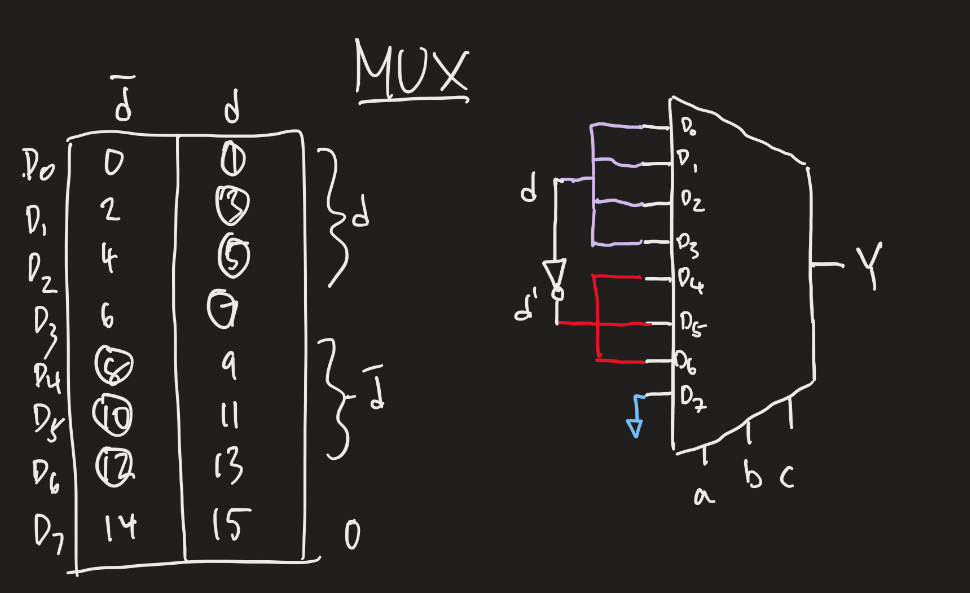 MUX
d̅ d
D0 0 1
D1 2 3
D2 4 5
D3 6 7
D4 8 9
D5 10 11
D6 12 13
D7 14 15 0
d
d̅
d
d'
D0
D1
D2
D3
D4
D5
D6
D7
Y
a b c